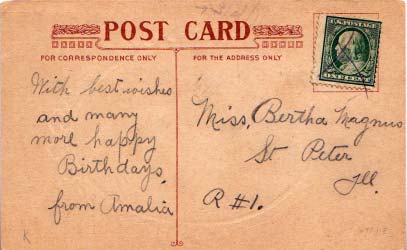 POST CARD
FOR CORRESPONDENCE ONLY
FOR THE ADDRESS ONLY
U.S. POSTAGE
ONE CENT
With best wishes
and many
more happy
Birthdays,
from Amalia
Miss, Bertha Magnus
St Peter
Ill.
R #1.
K